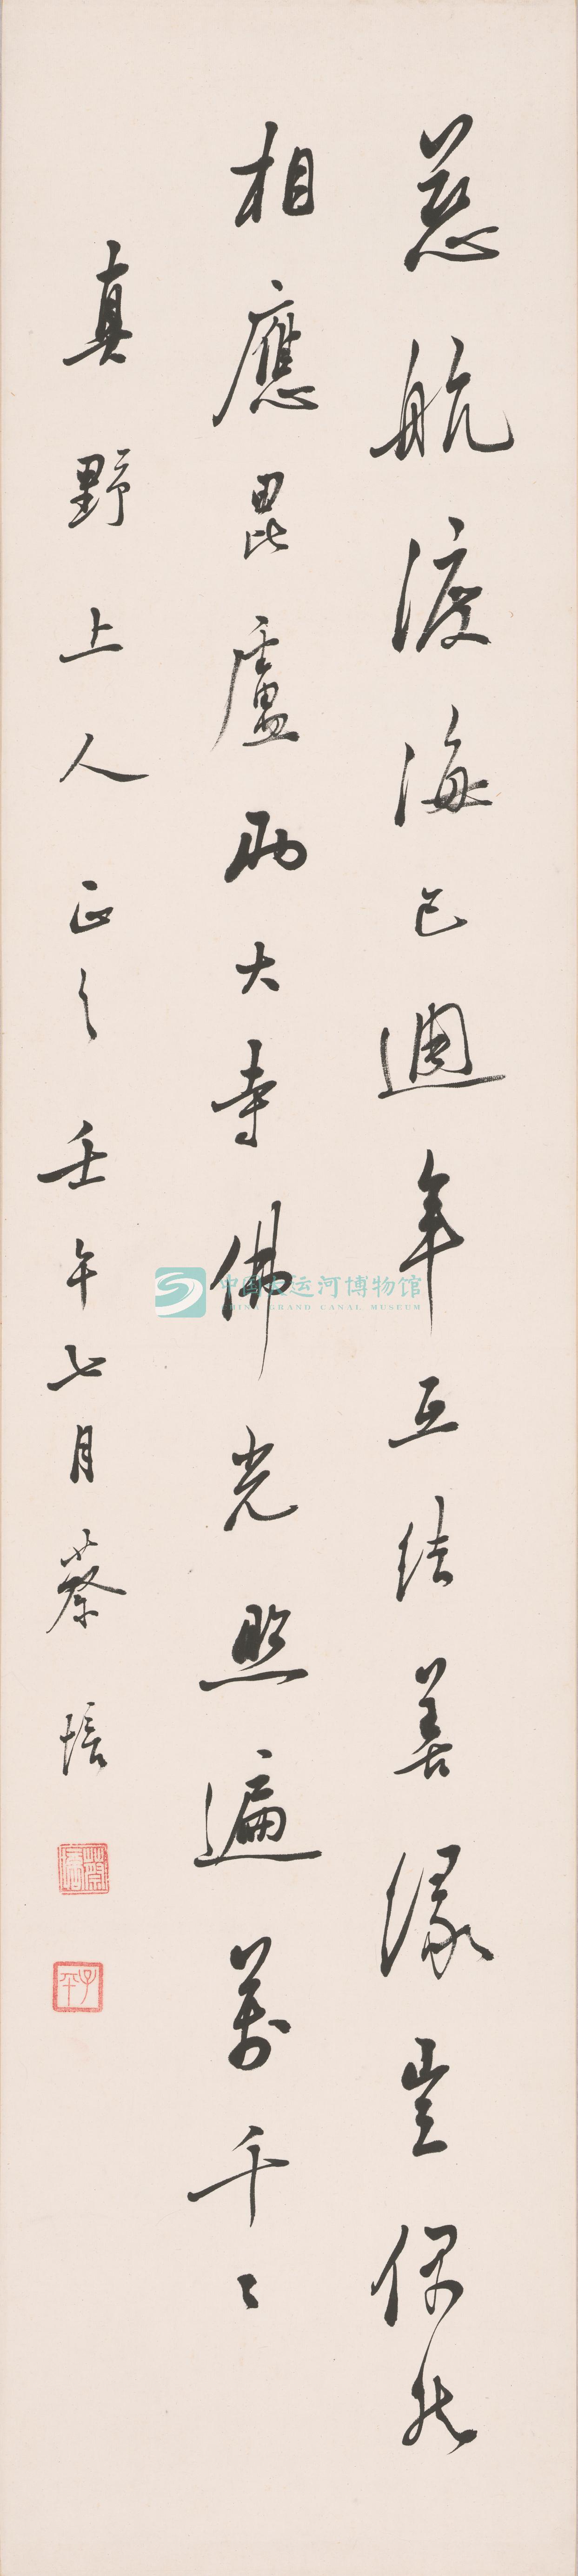 慈航渡海已週年互結善緣豈偶然
相應毘盧兩大寺佛光照遍萬千〻
真野上人 正之 壬午七月 蔡培
蔡培
子平
中国大运河博物馆
CHINA GRAND CANAL MUSEUM